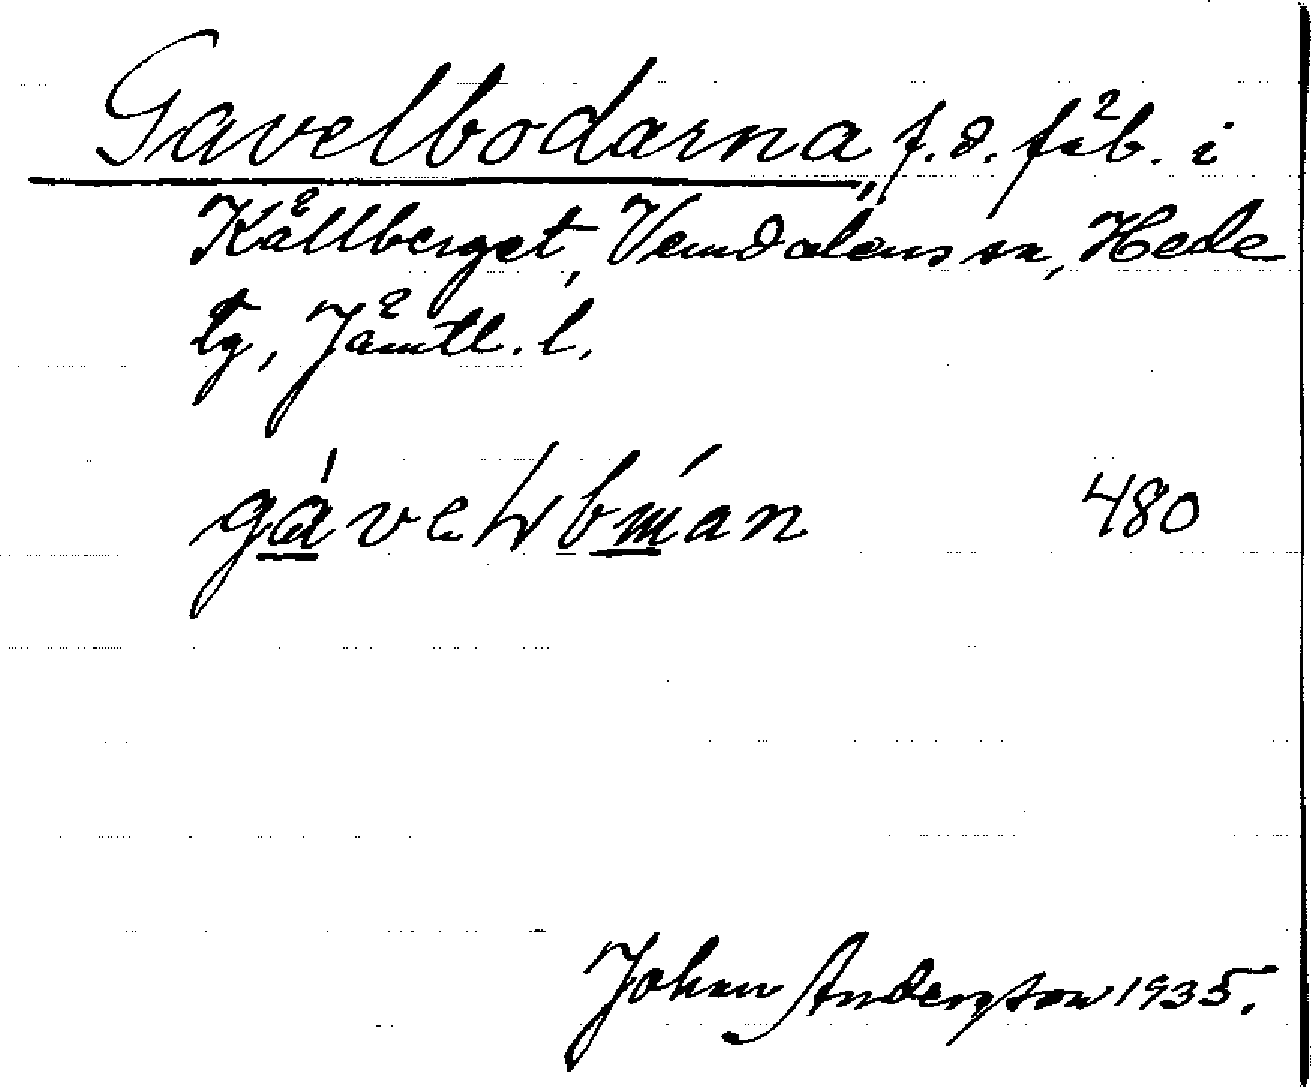 Gavelbodarna, f.d. fäb. i
Källberget, Vemdalens sn, Hede
tg, Jämtl. l.
480
Johan Anderson 1935.